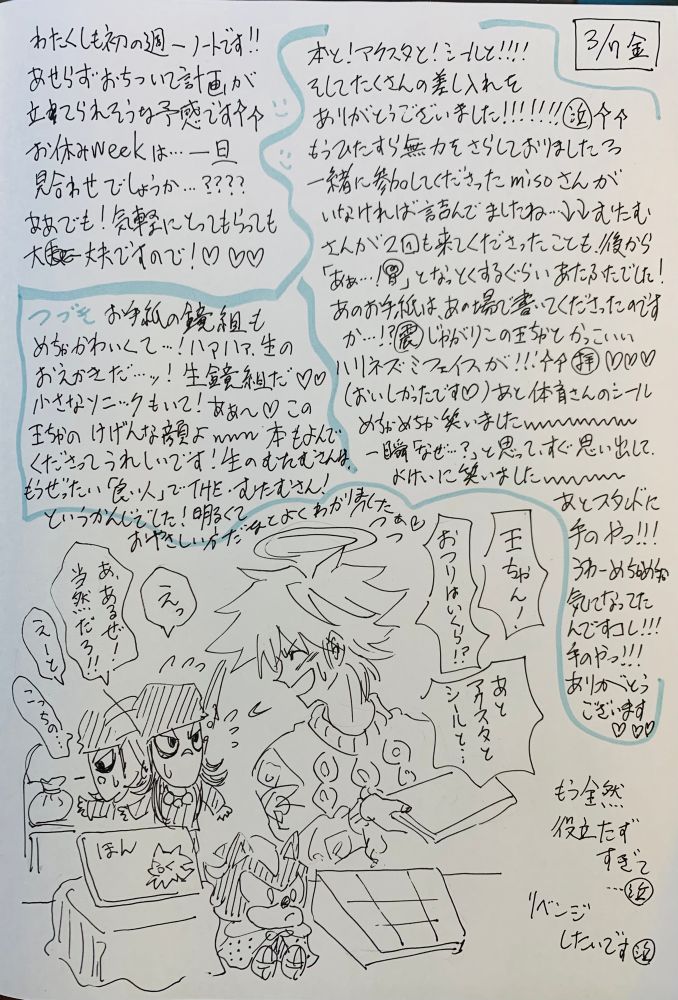 3/7 金
本と!アクスタと!シールと!!!!
そしてたくさんの差し入れを
ありがとうございました!!!!!!! 泣 ↑↑
もうひたすら無力をさらしておりましたろ
一緒に参加してくださったmisoさんが
いなければ詰んでましたね…↓↓むたむ
さんが2回も来てくださったことも、後から
「あぁ…!」となっとくするぐらいあたふたでした!
あのお手紙は、あの場で書いてくださったのです
か…!? 震 じゃがりこの王ちゃとかっこいい
ハリネズミフェイスが!!!↑↑ 拝 ♡♡♡
(おいしかったです♡)あと体育さんのシール
めちゃめちゃ笑いましたwwwww
一瞬「なぜ…?」と思って、すぐ思い出して、
よけいに笑いましたwwwww
あとスタンドに
手のやつ!!!
うわーめちゃめちゃ
気になってた
んですコレ!!!
手のやつ!!!
ありがとう
ございます
♡♡♡
わたくしも初の週一ノートです!!
あせらずおちついて計画が
立てられそうな予感です↑↑
お休みweekは…一旦
見合わせでしょうか…????
ああでも!気軽にとってもらっても
大丈夫ですので!♡♡♡
つづき お手紙の鏡組も
めちゃかわいくて…!ハァハァ、生の
おえかきだ…ッ!生鏡組だ♡♡
小さなソニックもいて!あぁ~♡この
王ちゃのけげんな顔よwww 本もよんで
くださってうれしいです!生のむたむさんは、
もうぜったい「良い人」でTHE・むたむさん!
というかんじでした!明るくて
おやさしい方だなとよくわかりました
王ちゃん!
おつりはいくら!?
あと
アクスタと
シールと…
えっ
あ、あるぜ!
当然だろ!!
えーと
こっちの…
ほん
もう全然
役立たず
すぎて
…泣
リベンジ
したいです 泣